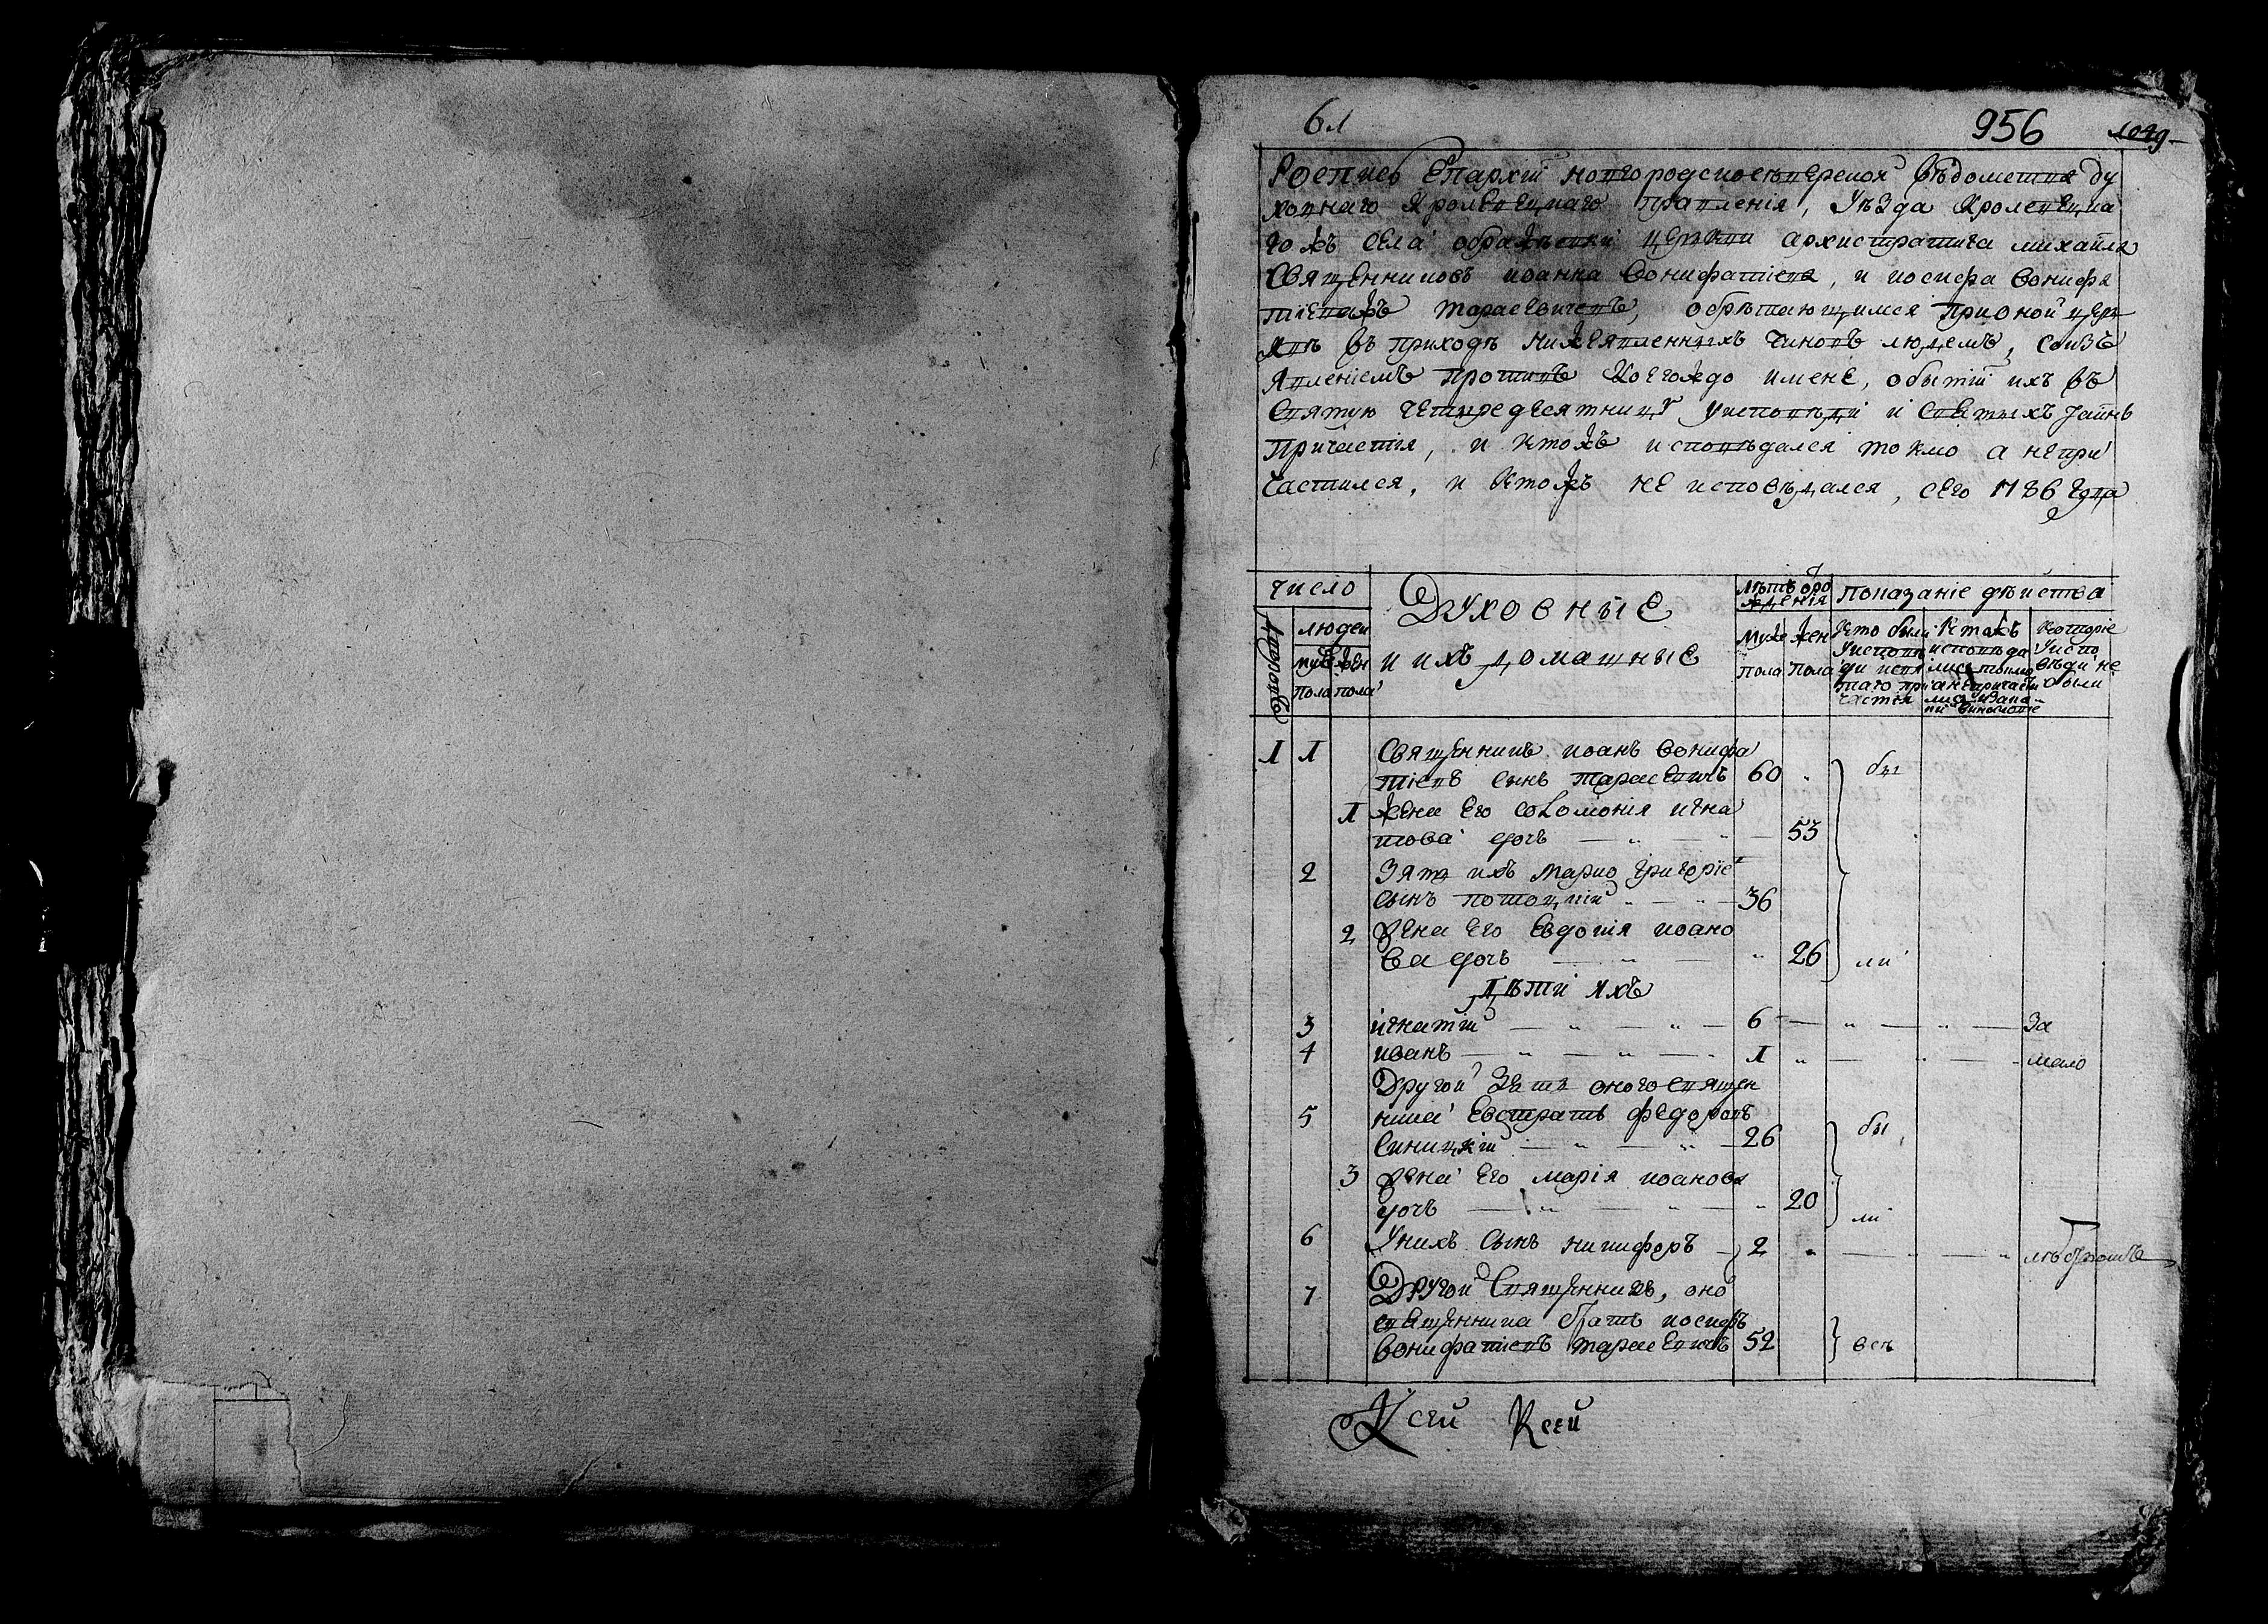 6л
956
1049
Роспись Епархіи новгородсиосѣверской вѣдомства ду
ховнаго Кролевецкаго правленія, Уезда Кролевецка
гожъ села ображѣевки церкви архистратига михаила
Священниковъ иоанна вонифатіева, и иосифа вонифа
тіеважъ тарасевичевъ, обрѣтающимся при оной цер
квѣ въ приходѣ нижеявленныхъ чиновъ людемъ, соизъ
явленіемъ противъ коегождо имене, обытіи ихъ въ
святую четиредесятницу уисповѣди и святыхъ таинъ
причастія, и ктожъ исповѣдался токмо а непри
частился, и ктожъ не исповѣдался, сего 1786 года
число
Духовные
лѣтъ оро
жденія
показаніе дѣйства
дворовъ
людей
и ихъ домашные
муже жен
пола пола
муж жен
пола пола
Кто были
уисповѣ
ди исвя
таго при
частія
Ктожъ
исповѣда
лись токмо
анепричасти
лись
Которіе
уиспо
вѣди не
были
1 1 Священникъ иоанъ вонифа
тіевъ сынъ тарасевичъ 60 бы
1 жена его соломонія игна
това дочь 53
2 Зять ихъ марко григоріе
сынъ потоцкій 36
2 жена его евдокія иоано
ва дочь 26 ли
дѣти ихъ
3 игнатій 6 за
4 иванъ 1 мало
Другой зять оного священ
5 ника евстратъ федоровъ
синицкій 26 бы
3 жена его марія иоанова
дочь 20 ли
6 Унихъ сынъ никифоръ 2 лѣтствомъ
7 Другой священникъ, оно
священника братъ иосифъ
вонифатіевъ тарасевичъ 52 всѣ
К сей К сей